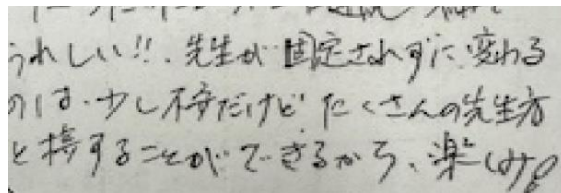 うれしい!!. 先生が固定されずに変わる
のは.少し不安だけど たくさんの先生方
と接することができるから、楽しみ